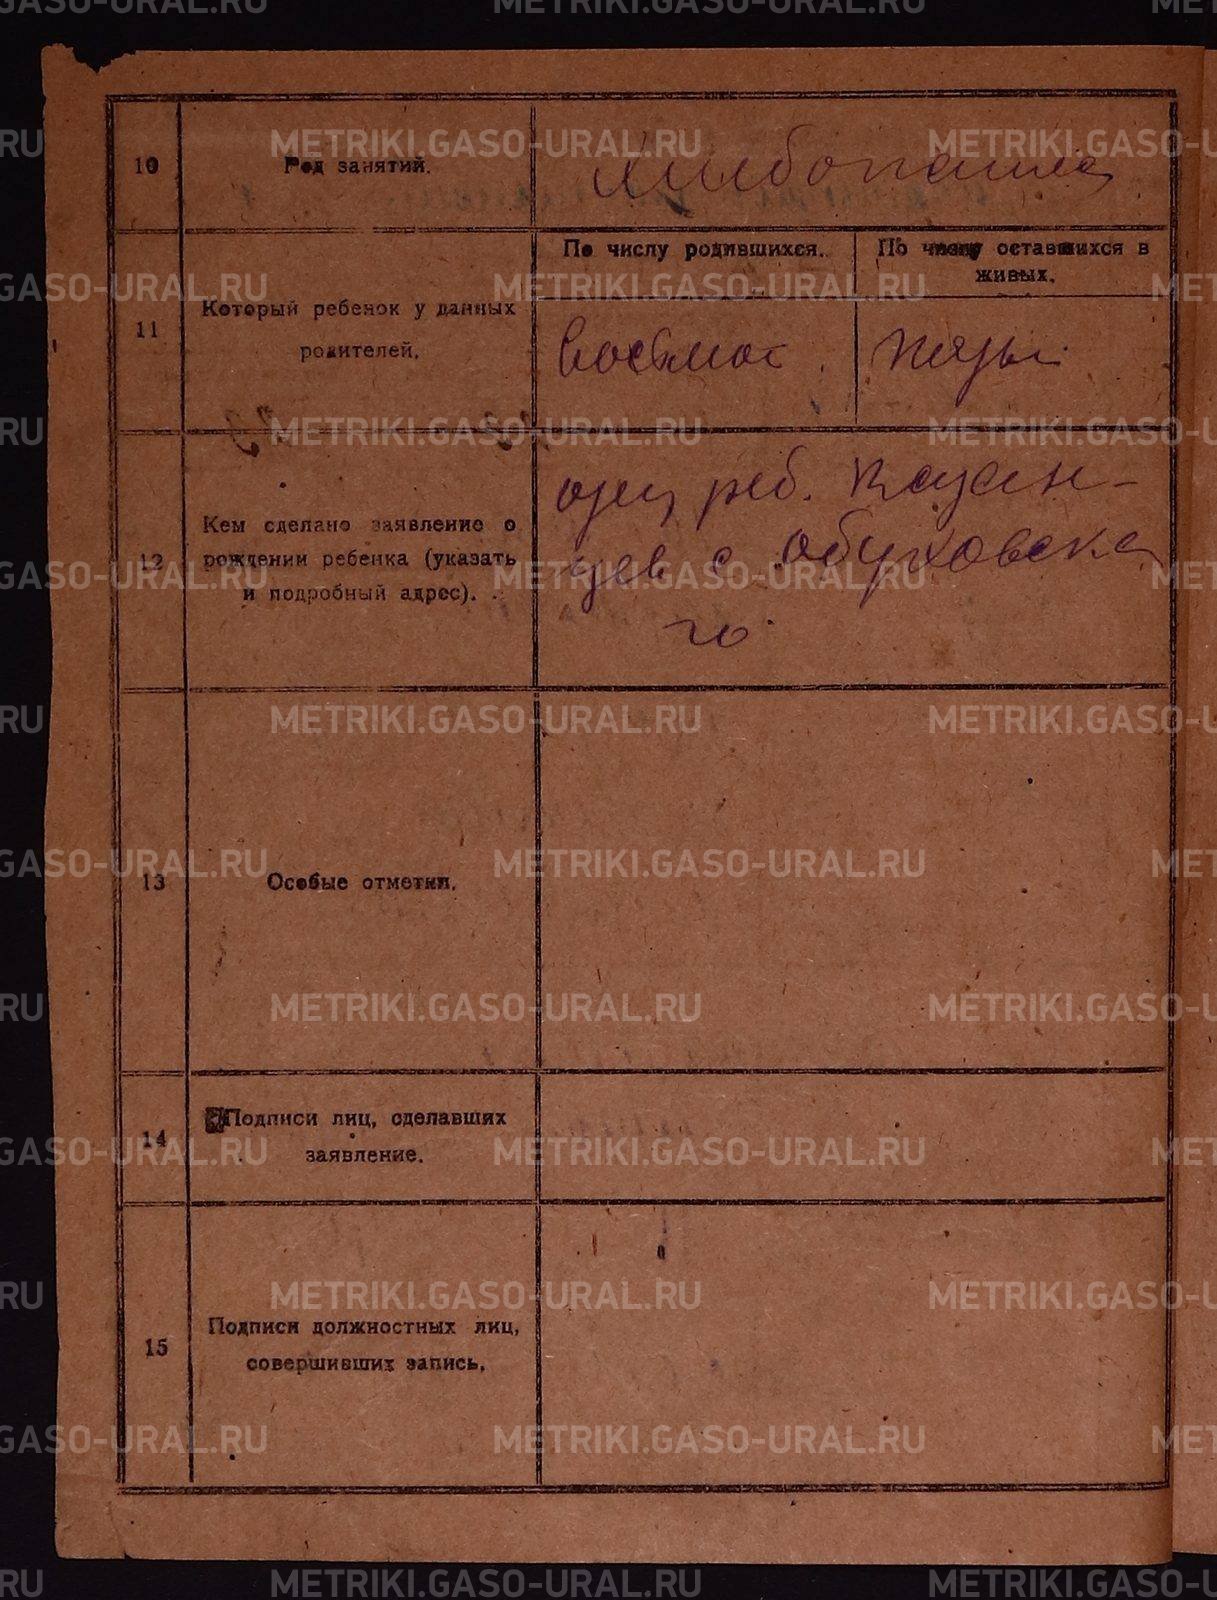 10
Род занятий.
Хлебопашец
11
Который ребенок у данных
родителей.
По числу родившихся.
По числу оставшихся в
живых.
восьмой
пятый
12
Кем сделано заявление о
рождении ребенка (указать
и подробный адрес).
отец реб. Казан-
цев с Обуховска
го
13
Особые отметки.
14
Подписи лиц, сделавших
заявление.
15
Подписи должностных лиц,
совершивших запись.
METRIKI.GASO-URAL.RU